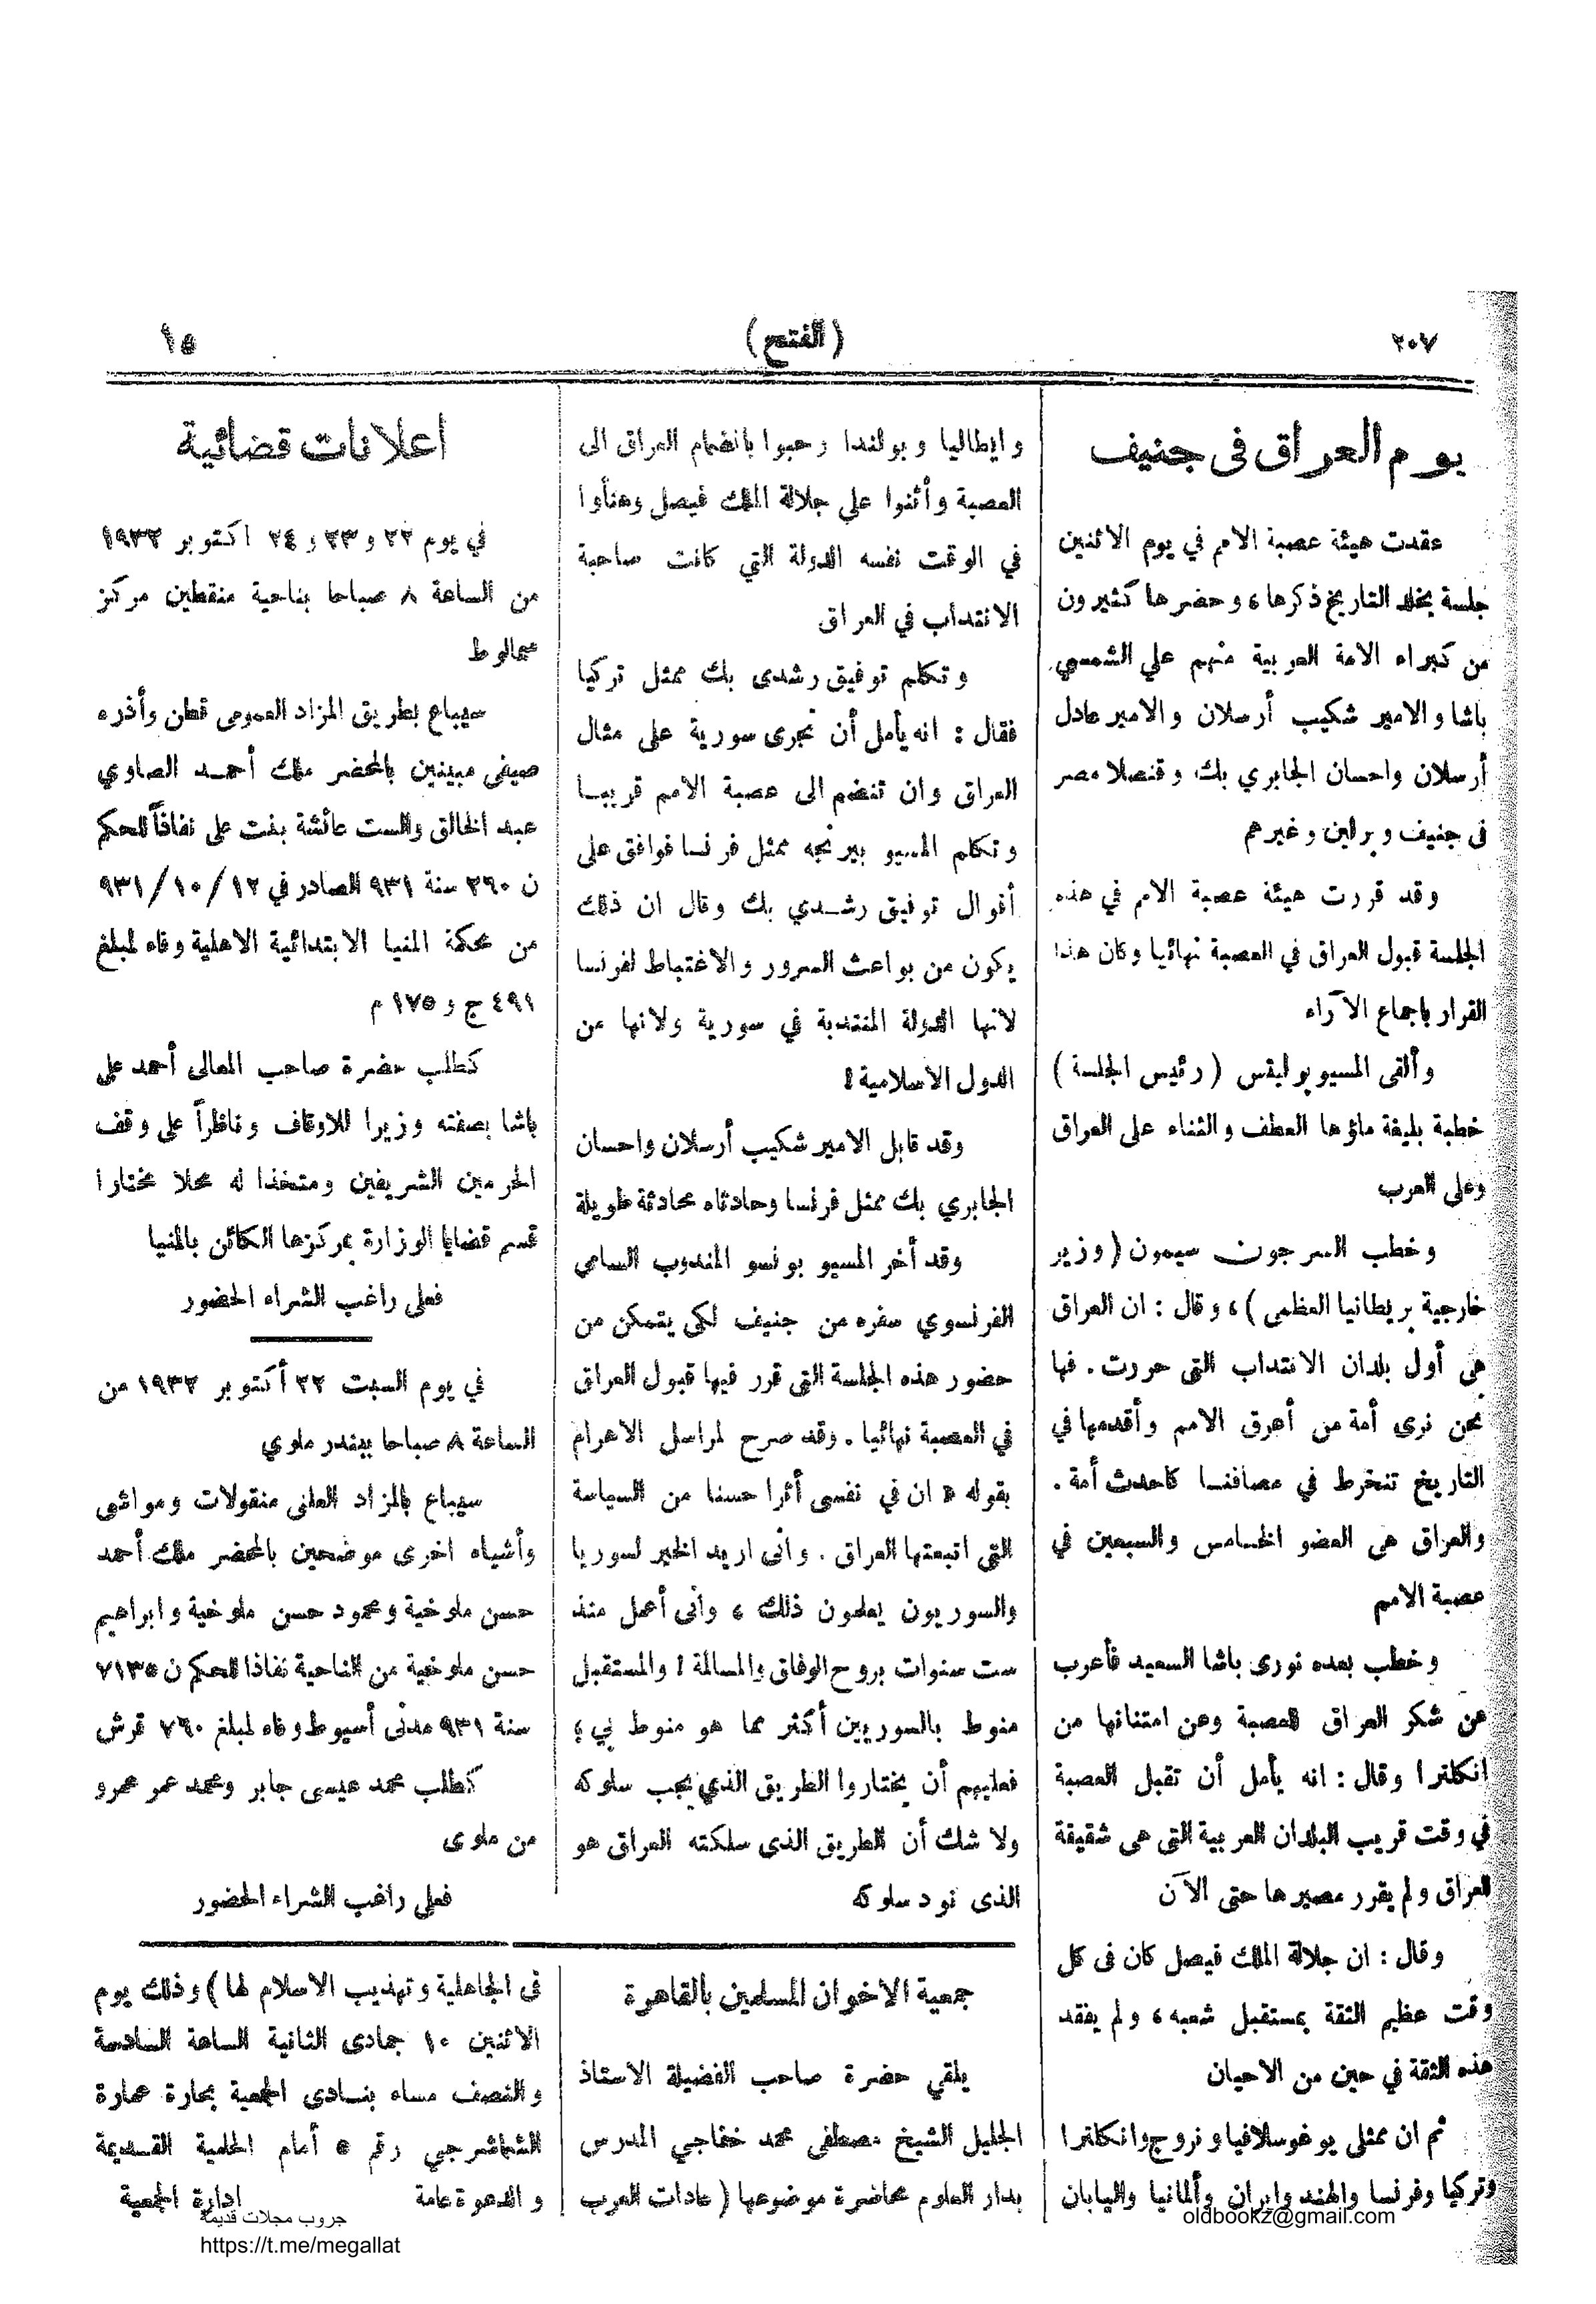 ٢٠٧
(الفتح)
١٥
يوم العراق في جنيف
عقدت هيئة عصبة الامم في يوم الاثنين
جلسة يخلد التاريخ ذكرها، وحضرها كثيرون
من كبراء الامة العربية منهم علي الشمسي
باشا والامير شكيب أرسلان والامير عادل
أرسلان واحسان الجابري بك وقنصلا مصر
في جنيف وبرلين وغيرهم
وقد قررت هيئة عصبة الامم في هذه
الجلسة قبول العراق في العصبة نهائيا وكان هذا
القرار باجماع الآراء
وألقى المسيو بوليتس (رئيس الجلسة)
خطبة بليغة ملؤها العطف والثناء على العراق
وعلى العرب
وخطب السر جون سيمون (وزير
خارجية بريطانيا العظمى)، وقال : ان العراق
هي أول بلدان الانتداب التي حررت. فها
نحن نرى أمة من أعرق الامم وأقدمها في
التاريخ تنخرط في مصافنا كاحدث أمة.
والعراق هي العضو الخامس والسبعين في
عصبة الامم
وخطب بعده نورى باشا السعيد فأعرب
عن شكر العراق للعصبة وعن امتنانها من
انكلترا وقال : انه يأمل أن تقبل العصبة
في وقت قريب البلدان العربية التي هي شقيقة
العراق ولم يقرر مصيرها حتى الآن
وقال : ان جلالة الملك فيصل كان في كل
وقت عظيم الثقة بمستقبل شعبه، ولم يفقد
هذه الثقة في حين من الاحيان
ثم ان ممثلي يوغوسلافيا ونروج وانكلترا
وتركيا وفرنسا والهند وايران وألمانيا واليابان
وايطاليا وبولندا رحبوا بانضمام العراق الى
العصبة وأثنوا على جلالة الملك فيصل وهنأوا
في الوقت نفسه الدولة التي كانت صاحبة
الانتداب في العراق
وتكلم توفيق رشدى بك ممثل تركيا
فقال : انه يأمل أن تجرى سورية على مثال
العراق وان تنضم الى عصبة الامم قريبا
وتكلم المسيو بيرنجه ممثل فرنسا فوافق على
أقوال توفيق رشدي بك وقال ان ذلك
يكون من بواعث السرور والاغتباط لفرنسا
لانها الدولة المنتدبة في سورية ولانها من
الدول الاسلامية !
وقد قابل الامير شكيب أرسلان واحسان
الجابري بك ممثل فرنسا وحادثاه محادثة طويلة
وقد أخر المسيو بونسو المندوب السامي
الفرنسوي سفره من جنيف لكي يتمكن من
حضور هذه الجلسة التي قرر فيها قبول العراق
في العصبة نهائيا. وقد صرح لمراسل الاهرام
بقوله « ان في نفسي أثرا حسنا من السياسة
التي اتبعتها العراق. وأني اريد الخير لسوريا
والسوريون يعلمون ذلك، وأني أعمل منذ
ست سنوات بروح الوفاق والمسالمة ! والمستقبل
منوط بالسوريين أكثر مما هو منوط بي؛
فعليهم أن يختاروا الطريق الذي يجب سلوكه
ولا شك أن الطريق الذى سلكته العراق هو
الذى نود سلوكه
اعلانات قضائية
في يوم ٢٢ و٢٣ و٢٤ اكتوبر ١٩٣٢
من الساعة ٨ صباحا بناحية منقطين مركز
سمالوط
سيباع بطريق المزاد العمومى قطن وأذره
صيفى مبينين بالمحضر ملك أحمد الصاوي
عبد الخالق والست عائشة بنت على نفاذاً للحكم
ن ٢٦٠ سنة ٩٣١ الصادر في ١٢/ ١٠/ ٩٣١
من محكمة المنيا الابتدائية الاهلية وفاء لمبلغ
٤٩١ ج و ١٧٥ م
كطلب حضرة صاحب المعالى أحمد على
باشا بصفته وزيرا للاوقاف وناظراً على وقف
الحرمين الشريفين ومتخذا له محلا مختارا
قسم قضايا الوزارة بمركزها الكائن بالمنيا
فعلى راغب الشراء الحضور
في يوم السبت ٢٢ أكتوبر ١٩٣٢ من
الساعة ٨ صباحا ببندر ملوي
سيباع بالمزاد العلنى منقولات ومواشى
وأشياء اخرى موضحين بالمحضر ملك أحمد
حسن ملوخية ومحمود حسن ملوخية وابراهيم
حسن ملوخية من الناحية نفاذا للحكم ن ٧١٣٥
سنة ٩٣١ مدنى أسيوط وفاء لمبلغ ٧٦٠ قرش
كطلب محمد عيسى جابر ومحمد عمر عمرو
من ملوى
فعلى راغب الشراء الحضور
جمعية الاخوان المسلمين بالقاهرة
يلقي حضرة صاحب الفضيلة الاستاذ
الجليل الشيخ مصطفى محمد خفاجي المدرس
بدار العلوم محاضرة موضوعها (عادات العرب
فى الجاهلية وتهذيب الاسلام لها) وذلك يوم
الاثنين ١٠ جمادى الثانية الساعة السادسة
والنصف مساء بنادى الجمعية بحارة عمارة
الشماشرجي رقم ٥ أمام الحلمية القديمة
والدعوة عامة
ادارة الجمعية
جروب مجلات قديمة
https://t.me/megallat
oldbookz@gmail.com